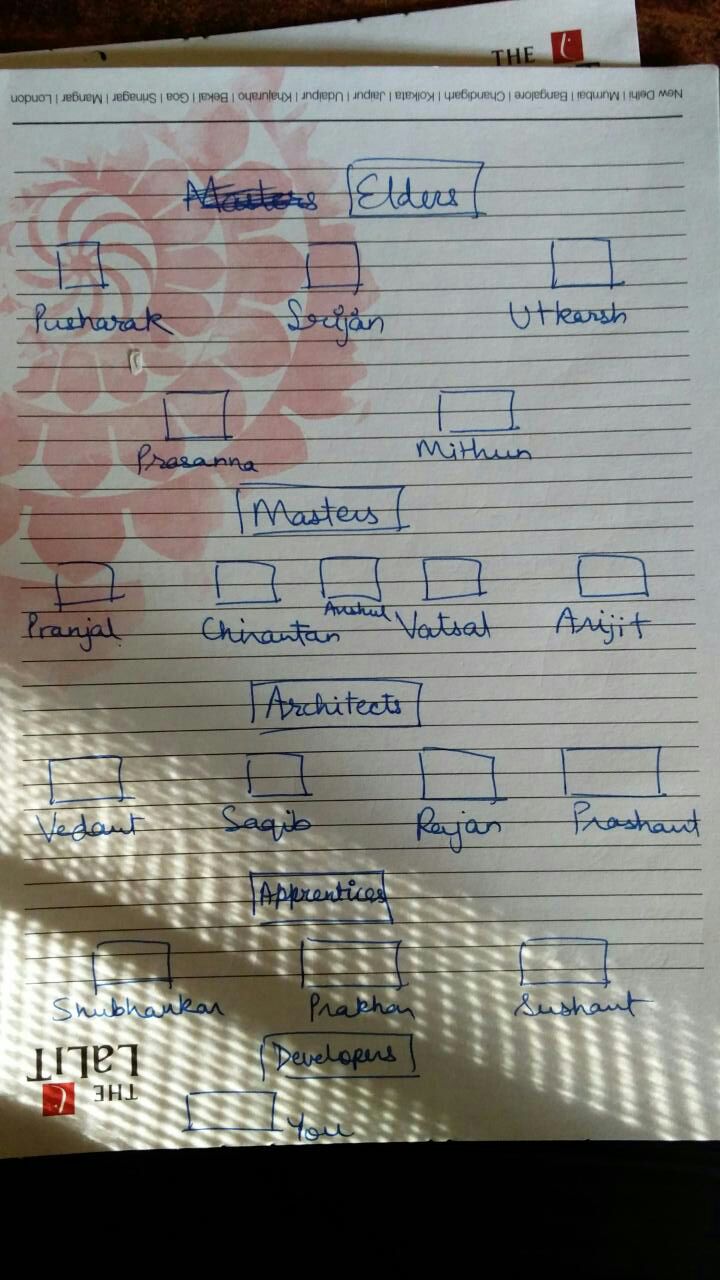 THE
New Delhi | Mumbai | Bangalore | Chandigarh | Kolkata | Jaipur | Udaipur | Khajuraho | Bekal | Goa | Srinagar | Mangar | London
Masters Elders
Pusharak Srijan Utkarsh
Prasanna Mithun
Masters
Pranjal Chirantan Anshul Vatsal Arijit
Architects
Vedant Saqib Rajan Prashant
Apprentices
Shubhankar Prakhar Sushant
Developers
THE
LaLiT
You